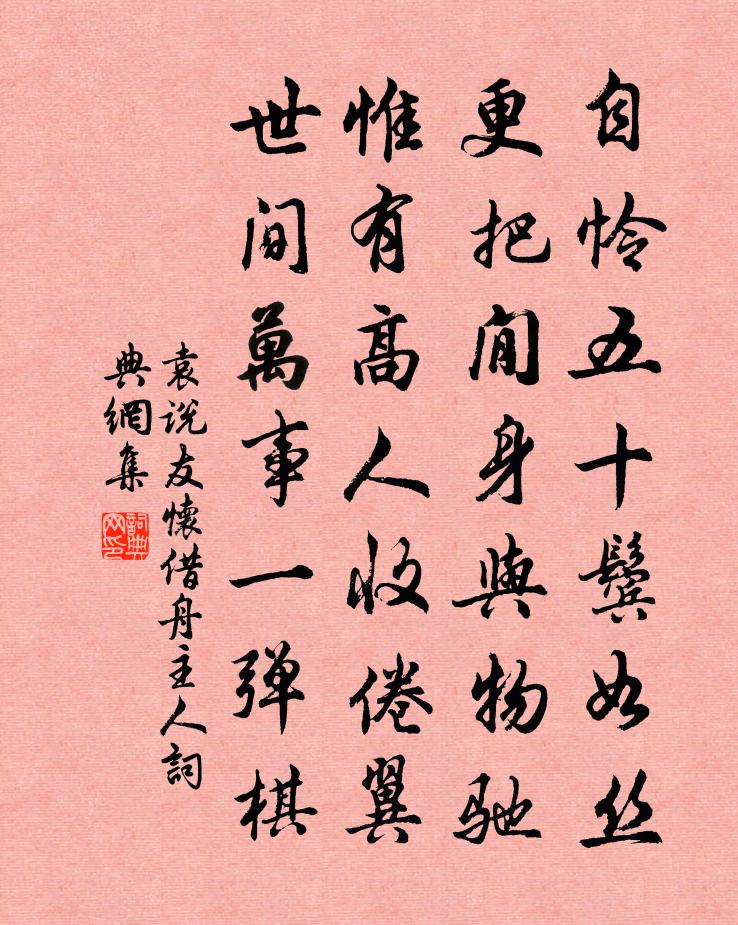 自怜五十鬓如丝
更把閒身與物驰
惟有高人收倦翼
世间萬事一弹棋
袁说友懷借舟主人詞
典網集
詞典網印